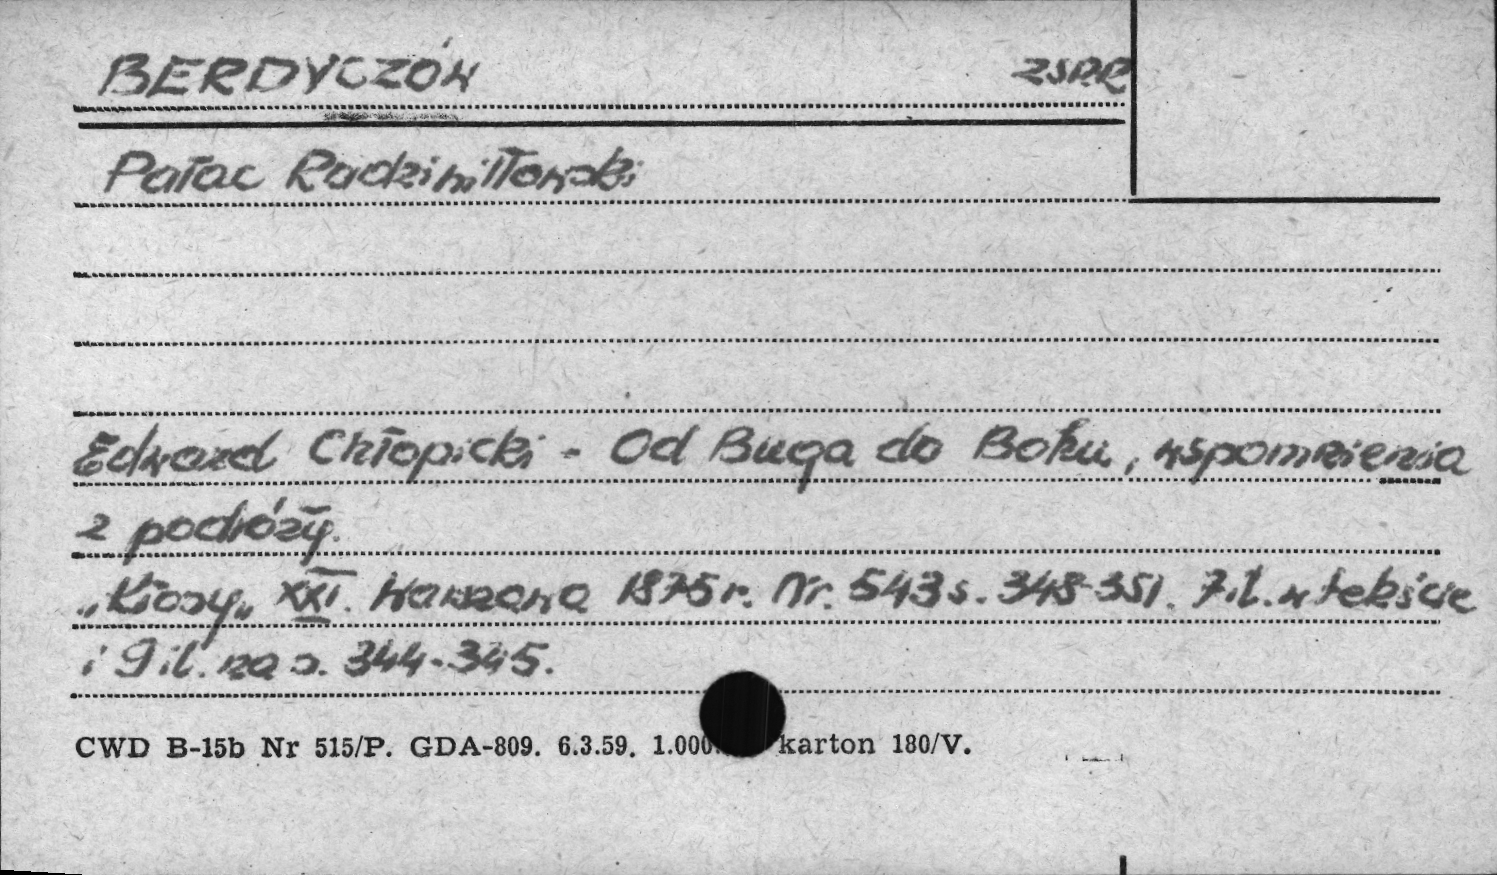 BERDYCZÓW ZSRR
Pałac Radziwiłłowski
Edward Chłopicki - Od Buga do Bohu, wspomnienia
z podróży.
„Kłosy„ XXI. Warszawa 1875 r. Nr. 543 s. 348-351. 7 il. w tekście
i 9 il. na s. 344-345.
CWD B-15b Nr 515/P. GDA-809. 6.3.59. 1.000. karton 180/V.